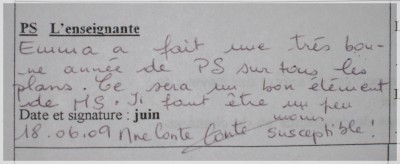 PS L'enseignante
Emma a fait une très bon-
ne année de PS sur tous les
plans. Ce sera un bon élément
de MS. Il faut être un peu
Date et signature : juin moins
18.06.09 Mne Conte Conte susceptible !